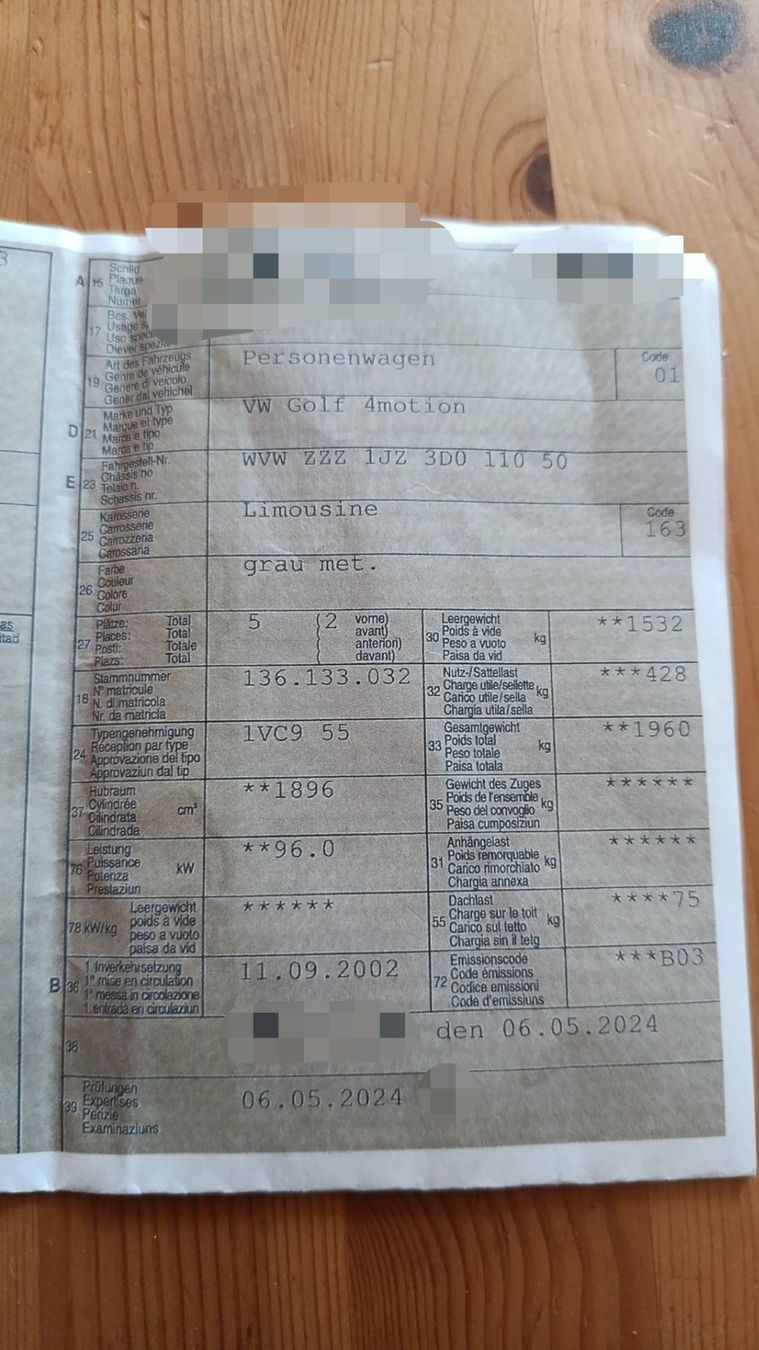 3
A 15 Schild
Plaque
Targa
Numer
17 Bes. Ve
Usage s
Uso spec
Diever spezia
19 Art des Fahrzeugs
Genre de véhicule
Genere di veicolo
Gener dal vehichel
Personenwagen
Code
01
D 21 Marke und Typ
Marque et type
Marca e tipo
Marca e tip
VW Golf 4motion
E 23 Fahrgestell-Nr.
Châssis no
Telaio n.
Schassis nr.
WVW ZZZ 1JZ 3D0 110 50
25 Karosserie
Carrosserie
Carrozzeria
Carossaria
Limousine
Code
163
26 Farbe
Couleur
Colore
Colur
grau met.
as
itad
27 Plätze: Total
Places: Total
Posti: Totale
Plazs: Total
5 (2 vorne)
( avant)
( anteriori)
( davant)
30 Leergewicht
Poids à vide
Peso a vuoto kg
Paisa da vid
**1532
18 Stammnummer
N° matricule
N. di matricola
Nr. da matricla
136.133.032
32 Nutz-/Sattellast
Charge utile/sellette kg
Carico utile/sella
Chargia utila/sella
***428
24 Typengenehmigung
Réception par type
Approvazione del tipo
Approvaziun dal tip
1VC9 55
33 Gesamtgewicht
Poids total kg
Peso totale
Paisa totala
**1960
37 Hubraum
Cylindrée cm³
Cilindrata
Cilindrada
**1896
35 Gewicht des Zuges
Poids de l'ensemble kg
Peso del convoglio
Paisa cumposiziun
******
76 Leistung
Puissance kW
Potenza
Prestaziun
**96.0
31 Anhängelast
Poids remorquable kg
Carico rimorchiato
Chargia annexa
******
78 kW/kg Leergewicht
poids à vide
peso a vuoto
paisa da vid
******
55 Dachlast
Charge sur le toit kg
Carico sul tetto
Chargia sin il tetg
****75
B 36 1. Inverkehrsetzung
1re mise en circulation
1a messa in circolazione
1. entrada en circulaziun
11.09.2002
72 Emissionscode
Code émissions
Codice emissioni
Code d'emissiuns
***B03
38
den 06.05.2024
39 Prüfungen
Expertises
Perizie
Examinaziuns
06.05.2024